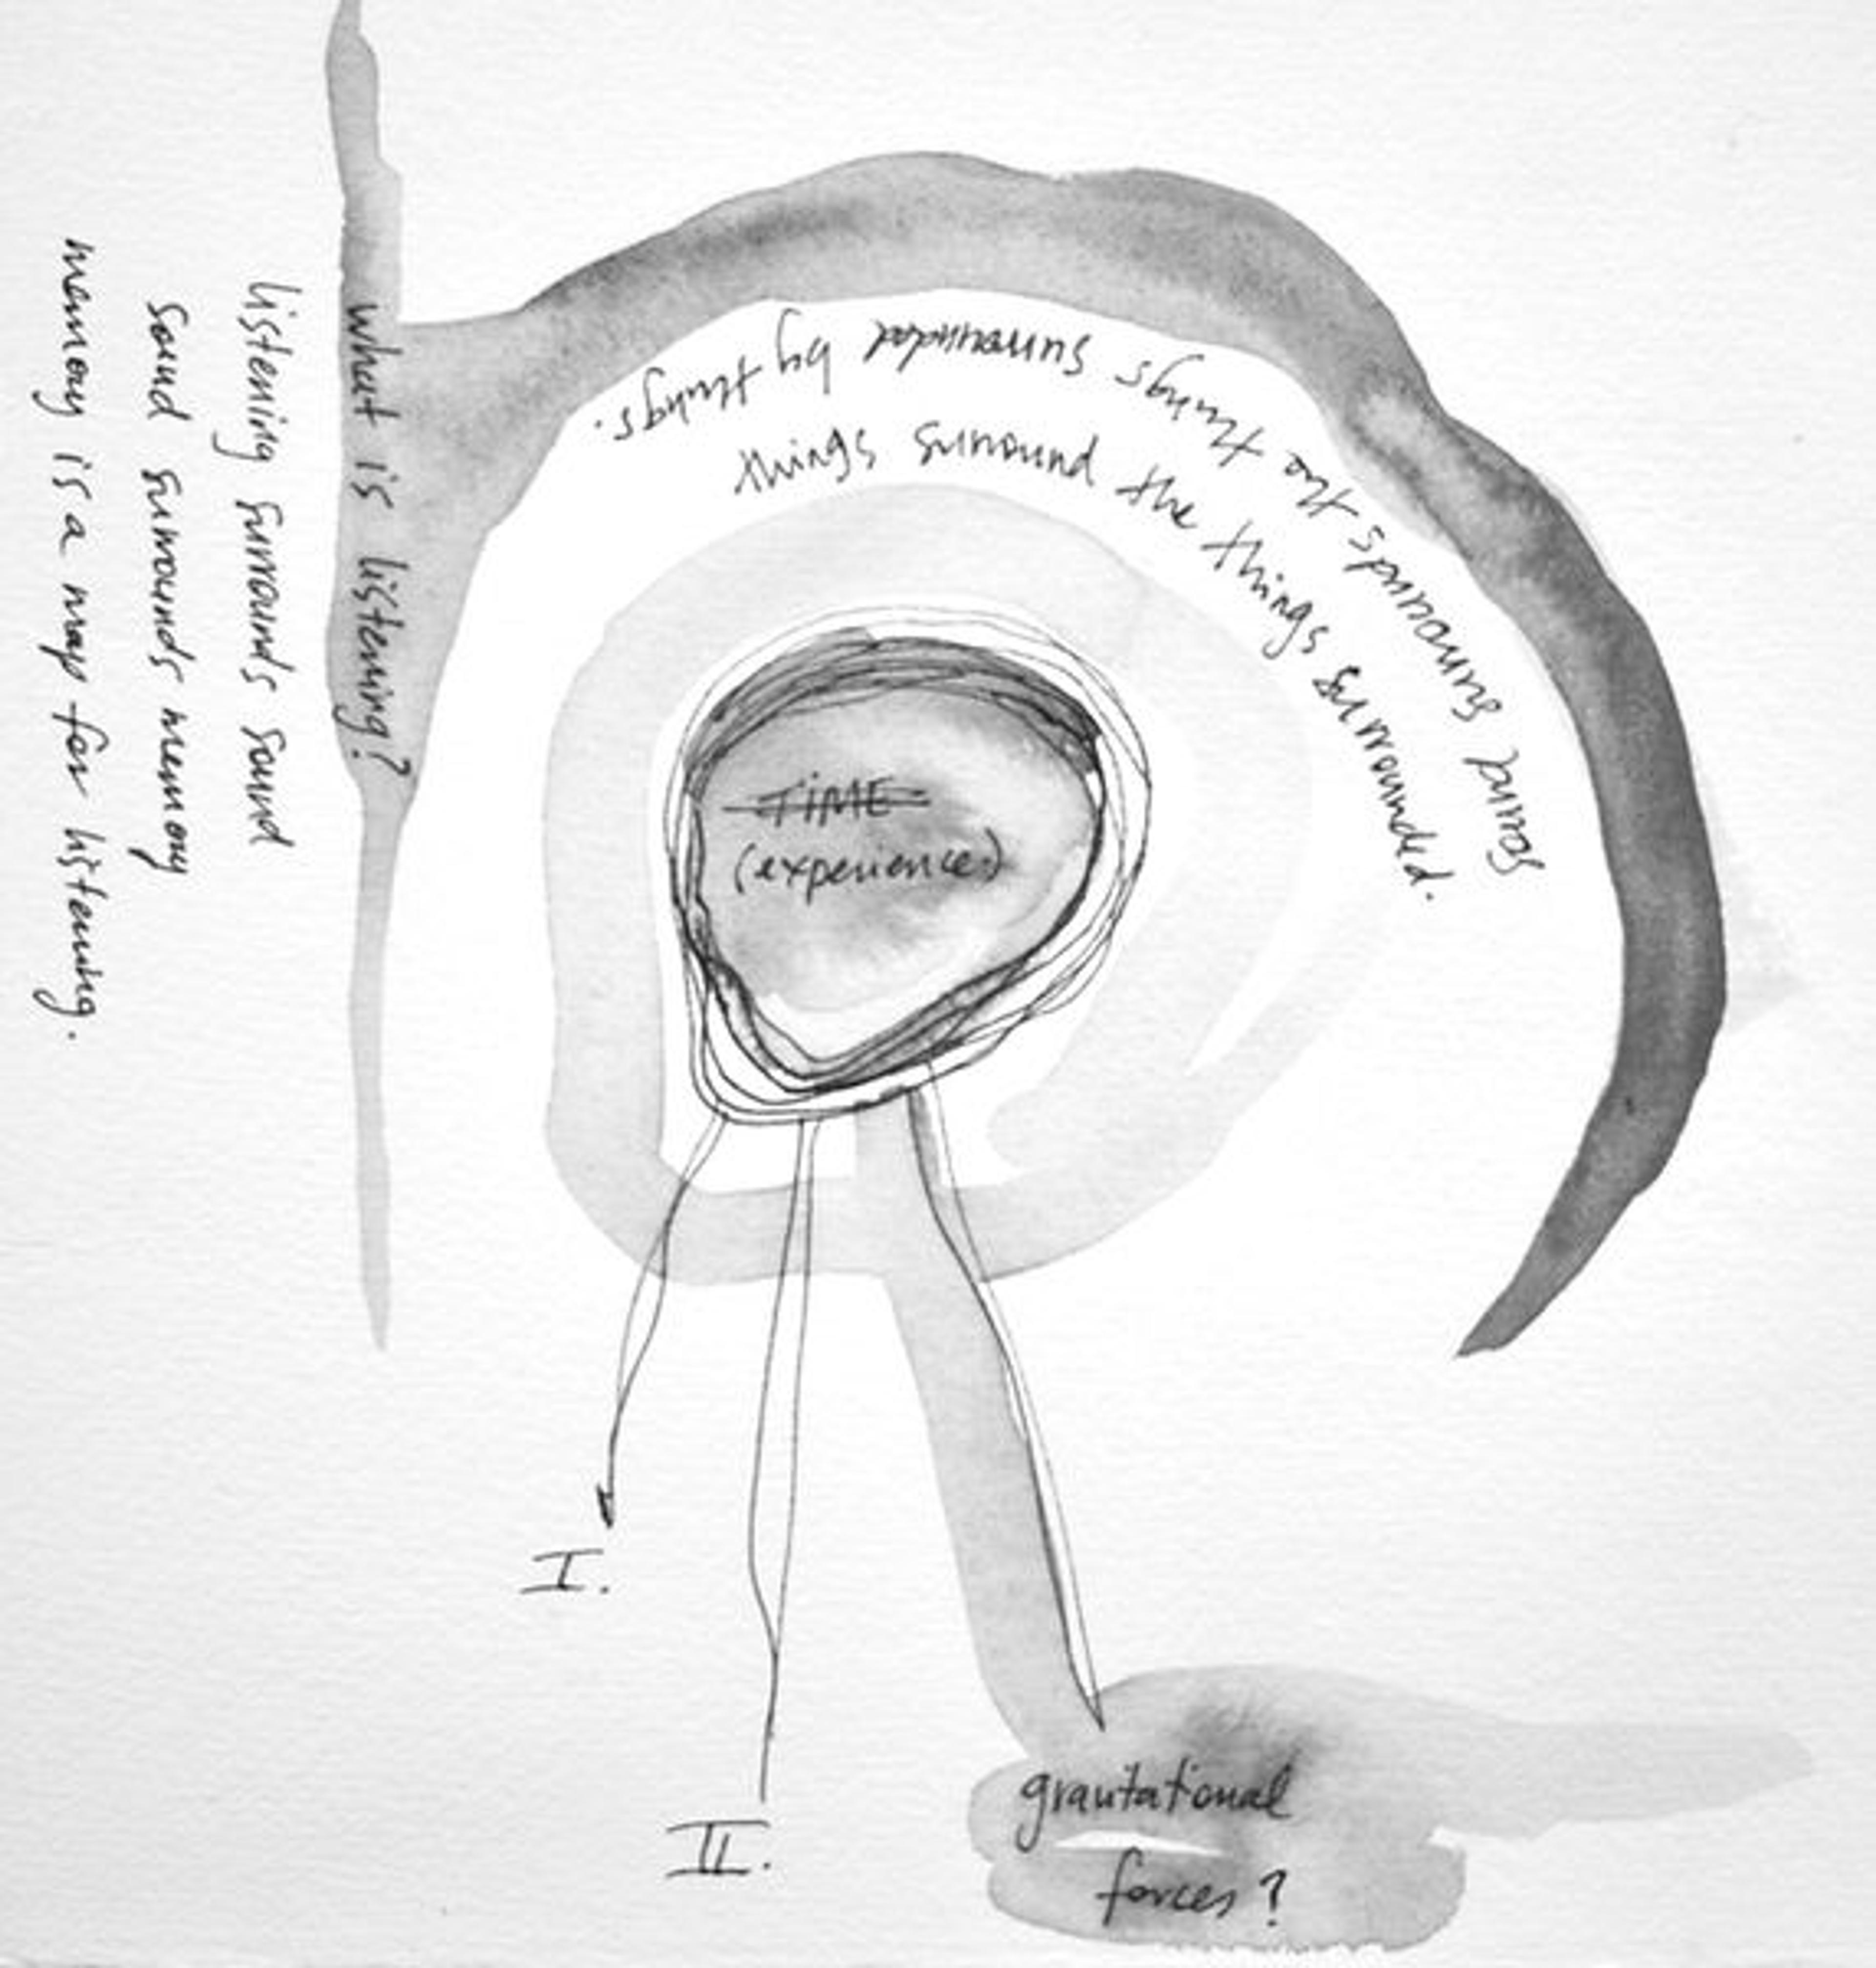 what is listening?
listening surrounds sound
sound surrounds memory
memory is a map for listening.
sound surrounds the things surrounded by things.
things surround the things surrounded.
TIME
(experience)
I.
II.
gravitational
forces?